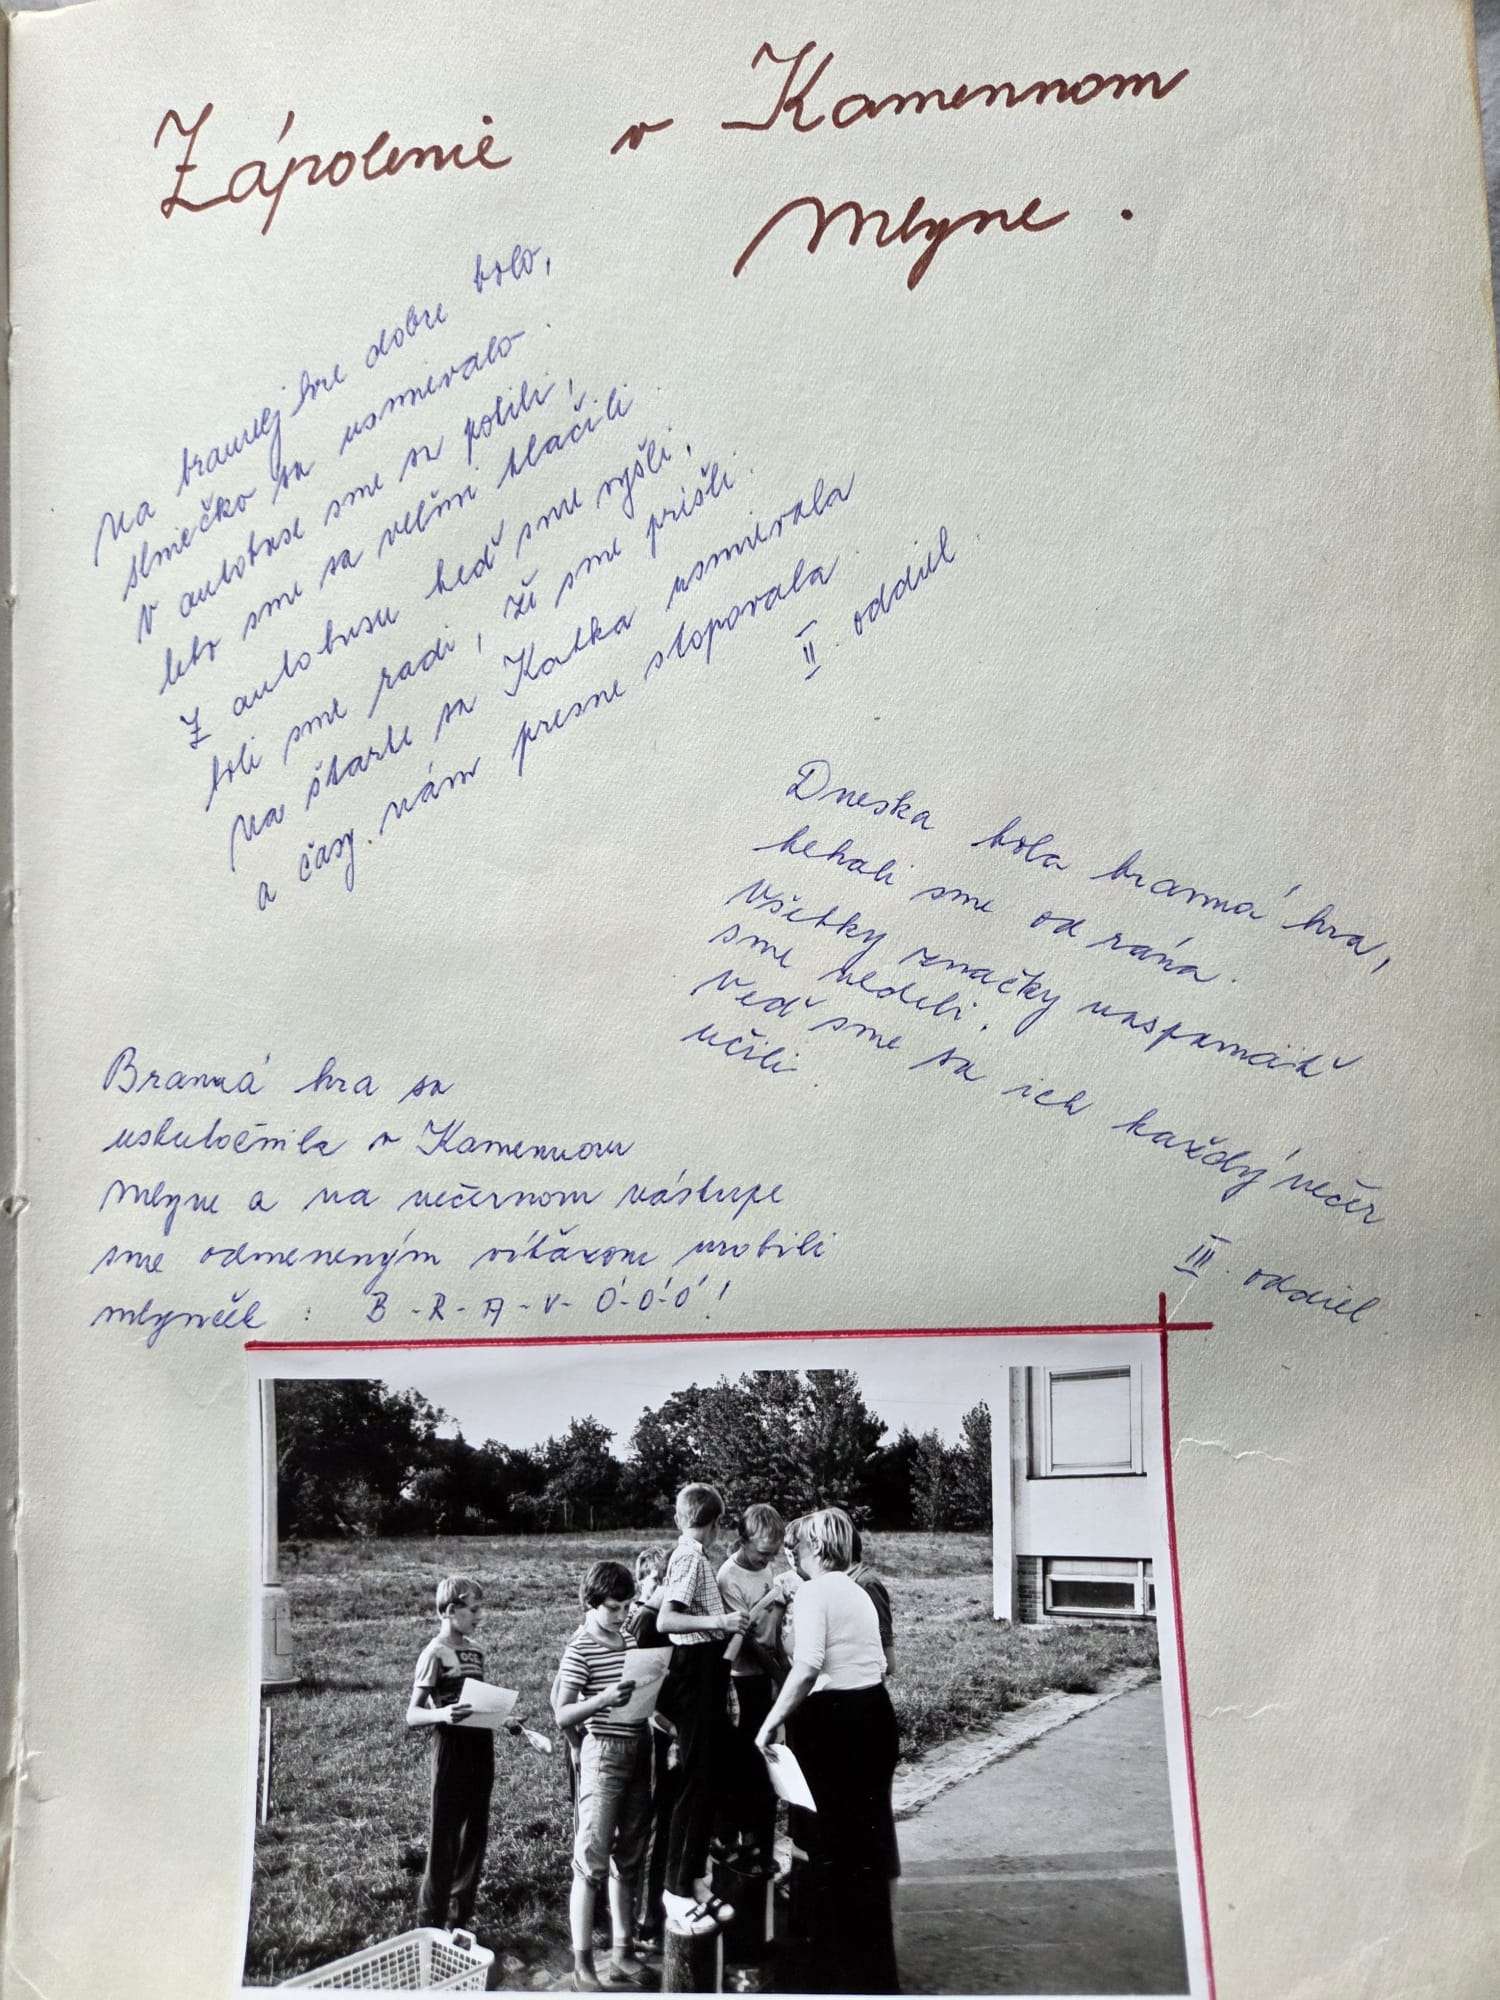 Zápolenie v Kamennom
Mlyne.
Na brannej hre dobre bolo,
slniečko sa usmievalo.
V autobuse sme sa potili,
lebo sme sa veľmi tlačili.
Z autobusu keď sme vyšli,
boli sme radi, že sme prišli.
Na štarte sa Katka usmievala
a časy nám presne stopovala
II. oddiel.
Dneska bola branná hra,
behali sme od rána.
Všetky značky naspamäť
sme vedeli.
Veď sme sa ich každý večer
učili.
III. oddiel.
Branná hra sa
uskutočnila v Kamennom
Mlyne a na večernom nástupe
sme odmeneným víťazom urobili
mlynček: B-R-A-V-Ó-Ó-Ó!